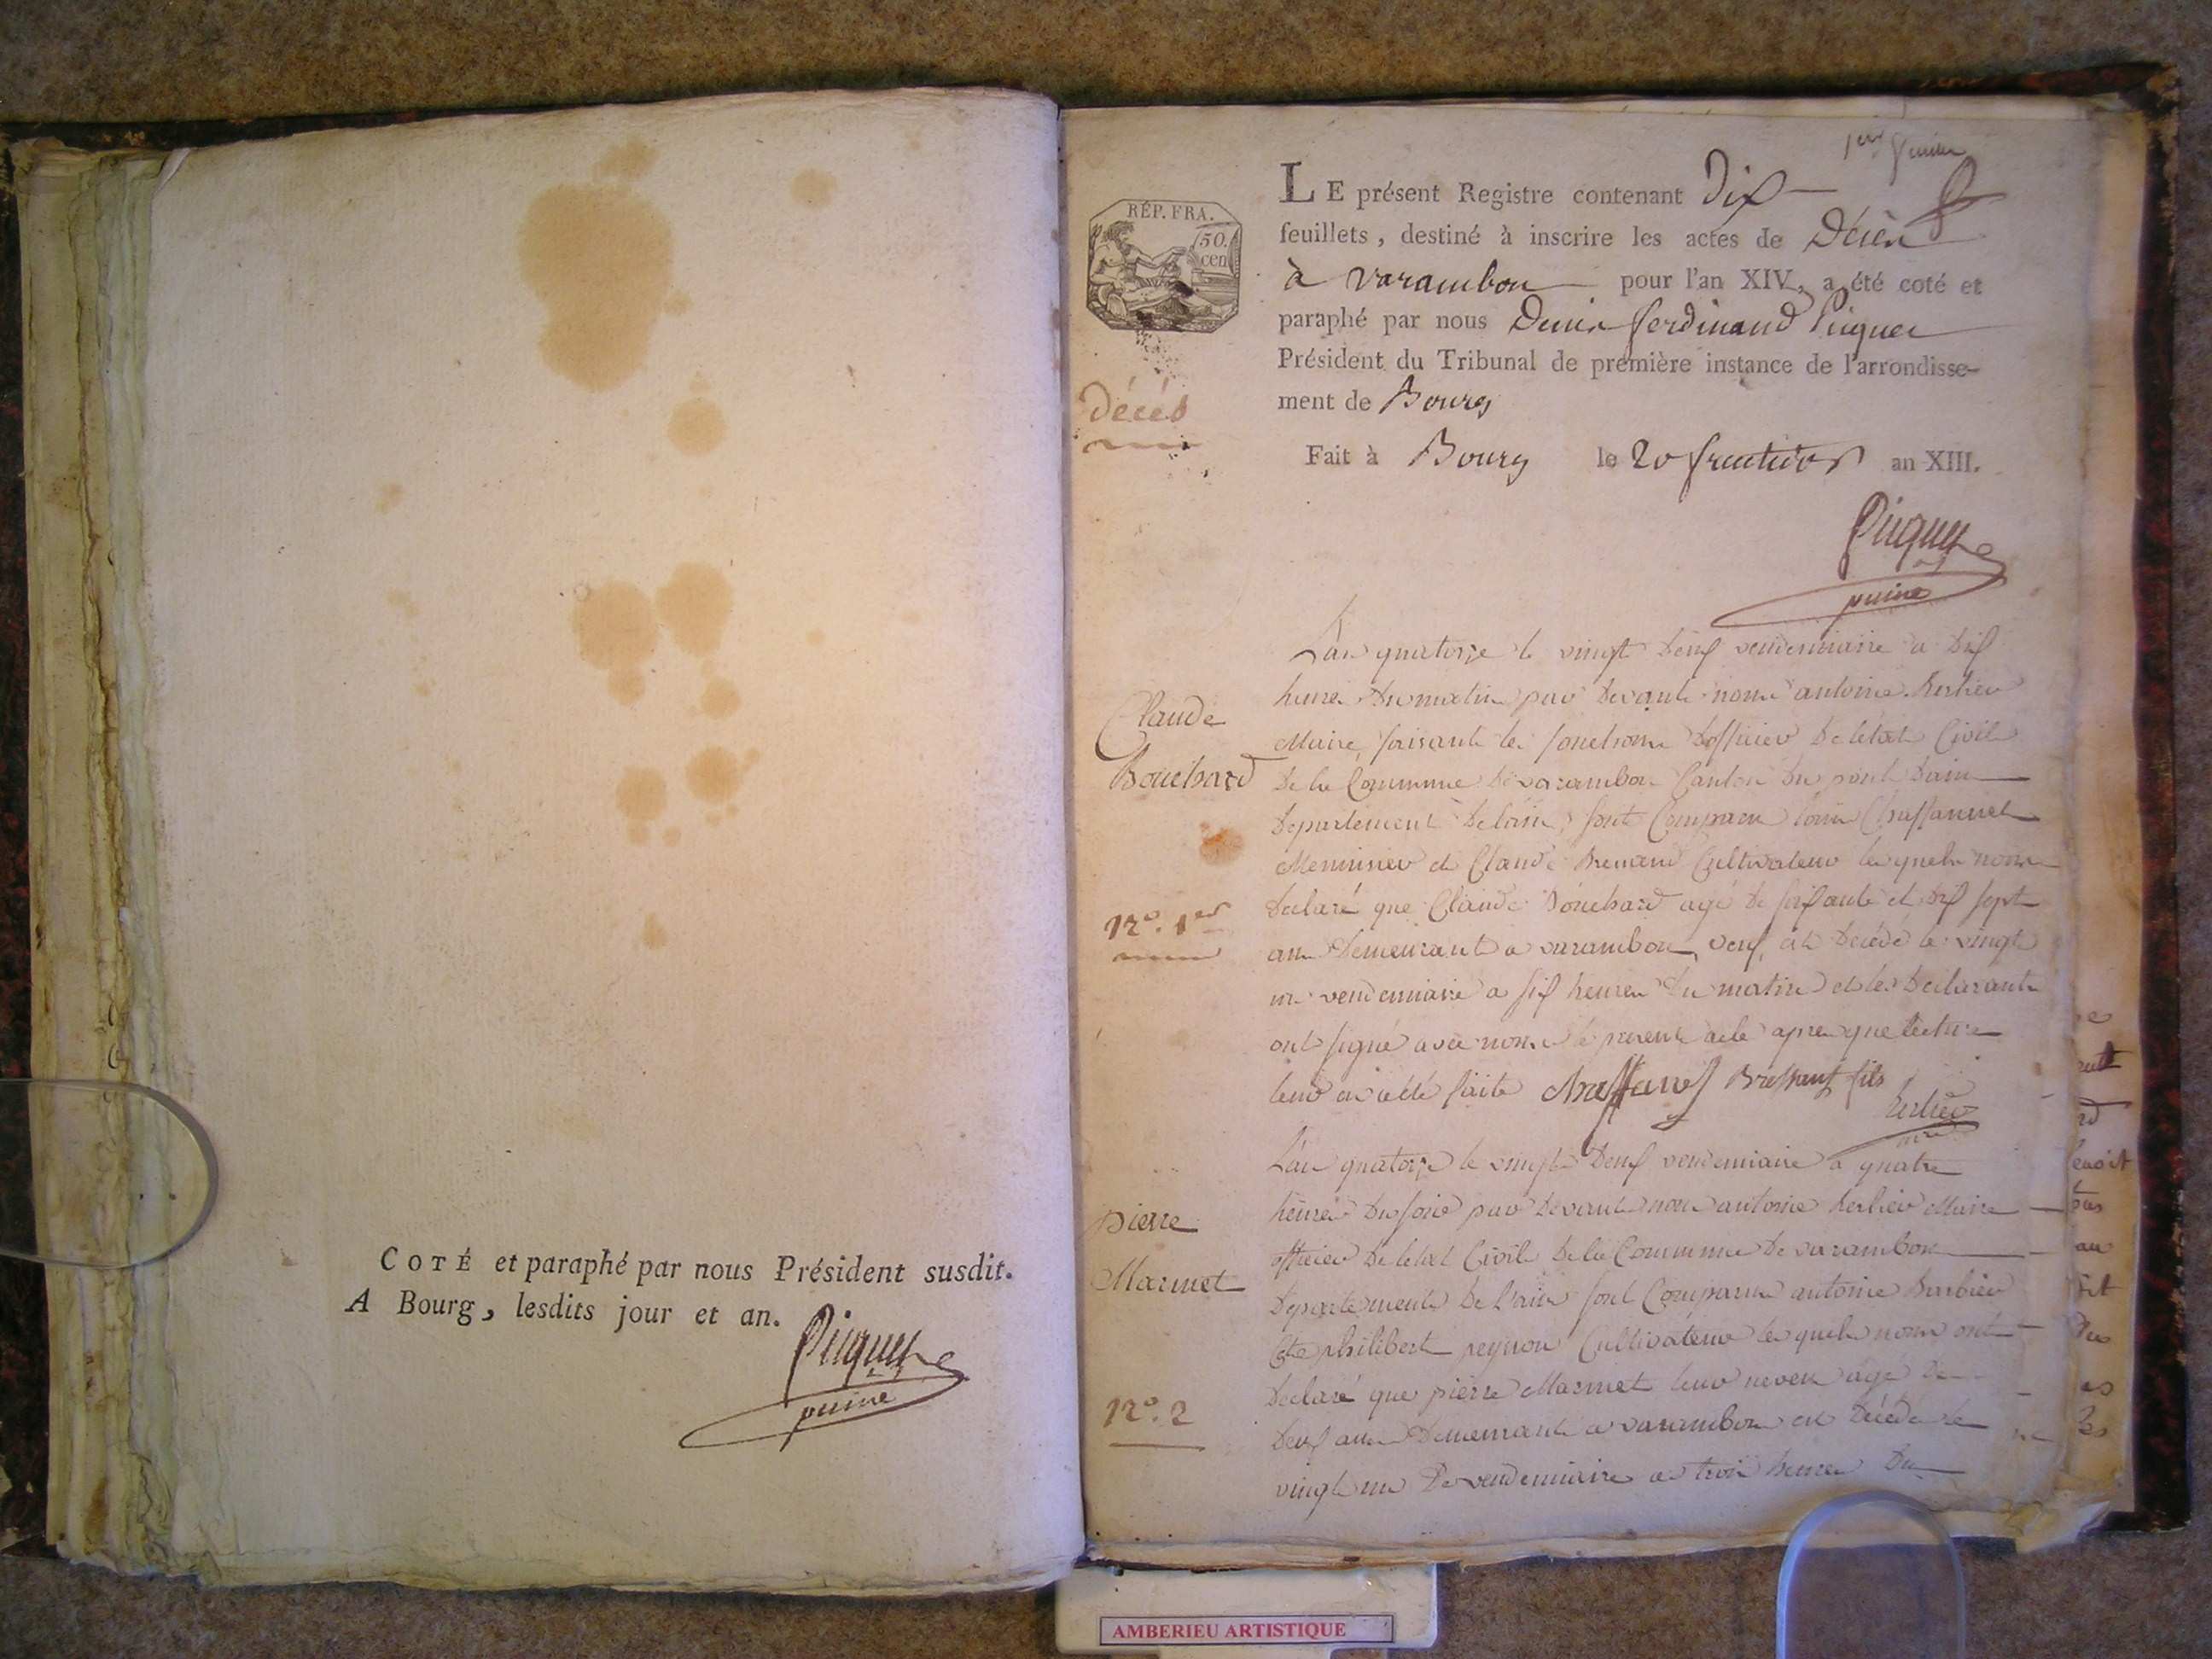 COTÉ et paraphé par nous Président susdit.
A Bourg, lesdits jour et an.
Picquet
puiné
1er feuillet
RÉP. FRA.
50.
cen
LE présent Registre contenant Dix
feuillets, destiné à inscrire les actes de Décès
à varambon pour l'an XIV, a été coté et
paraphé par nous Denis ferdinand Picquet
Président du Tribunal de première instance de l'arrondisse-
ment de Bourg
Fait à Bourg le 20 fructidor an XIII.
Picquet
puiné
décés
Claude
Bouchard
N°. 1er
L'an quatorze le vingt deux vendemiaire a dix
heures du matin par devant nous antoine
Maire faisant les fonctions d'officier de letat Civil
de la Commune de varambon Canton du pont dain
departement de lain, sont Comparu Chassannet
Menuisier et Claude Cultivateur les quels nous
declaré que Claude Bouchard agé de soixante et dix sept
ans demeurant a varambon, veuf, est decedé le vingt
un vendemiaire a six heures du matin et les declarants
ont signé avec nous le present acte apres que lecture
leur a etté faite Bressant fils
Pierre
Marmet
N°. 2
L'an quatorze le vingt deux vendemiaire a quatre
heures du soir par devant nous antoine Maire
officier de letat Civil de la Commune de varambon
departement de l'ain sont Comparu antoine Barbier
et philibert peysson Cultivateur les quels nous ont
declaré que pierre Marmet leur neveu agé de
deux ans demeurant a varambon est decedé le
vingt un de vendemiaire a trois heures du
AMBERIEU ARTISTIQUE